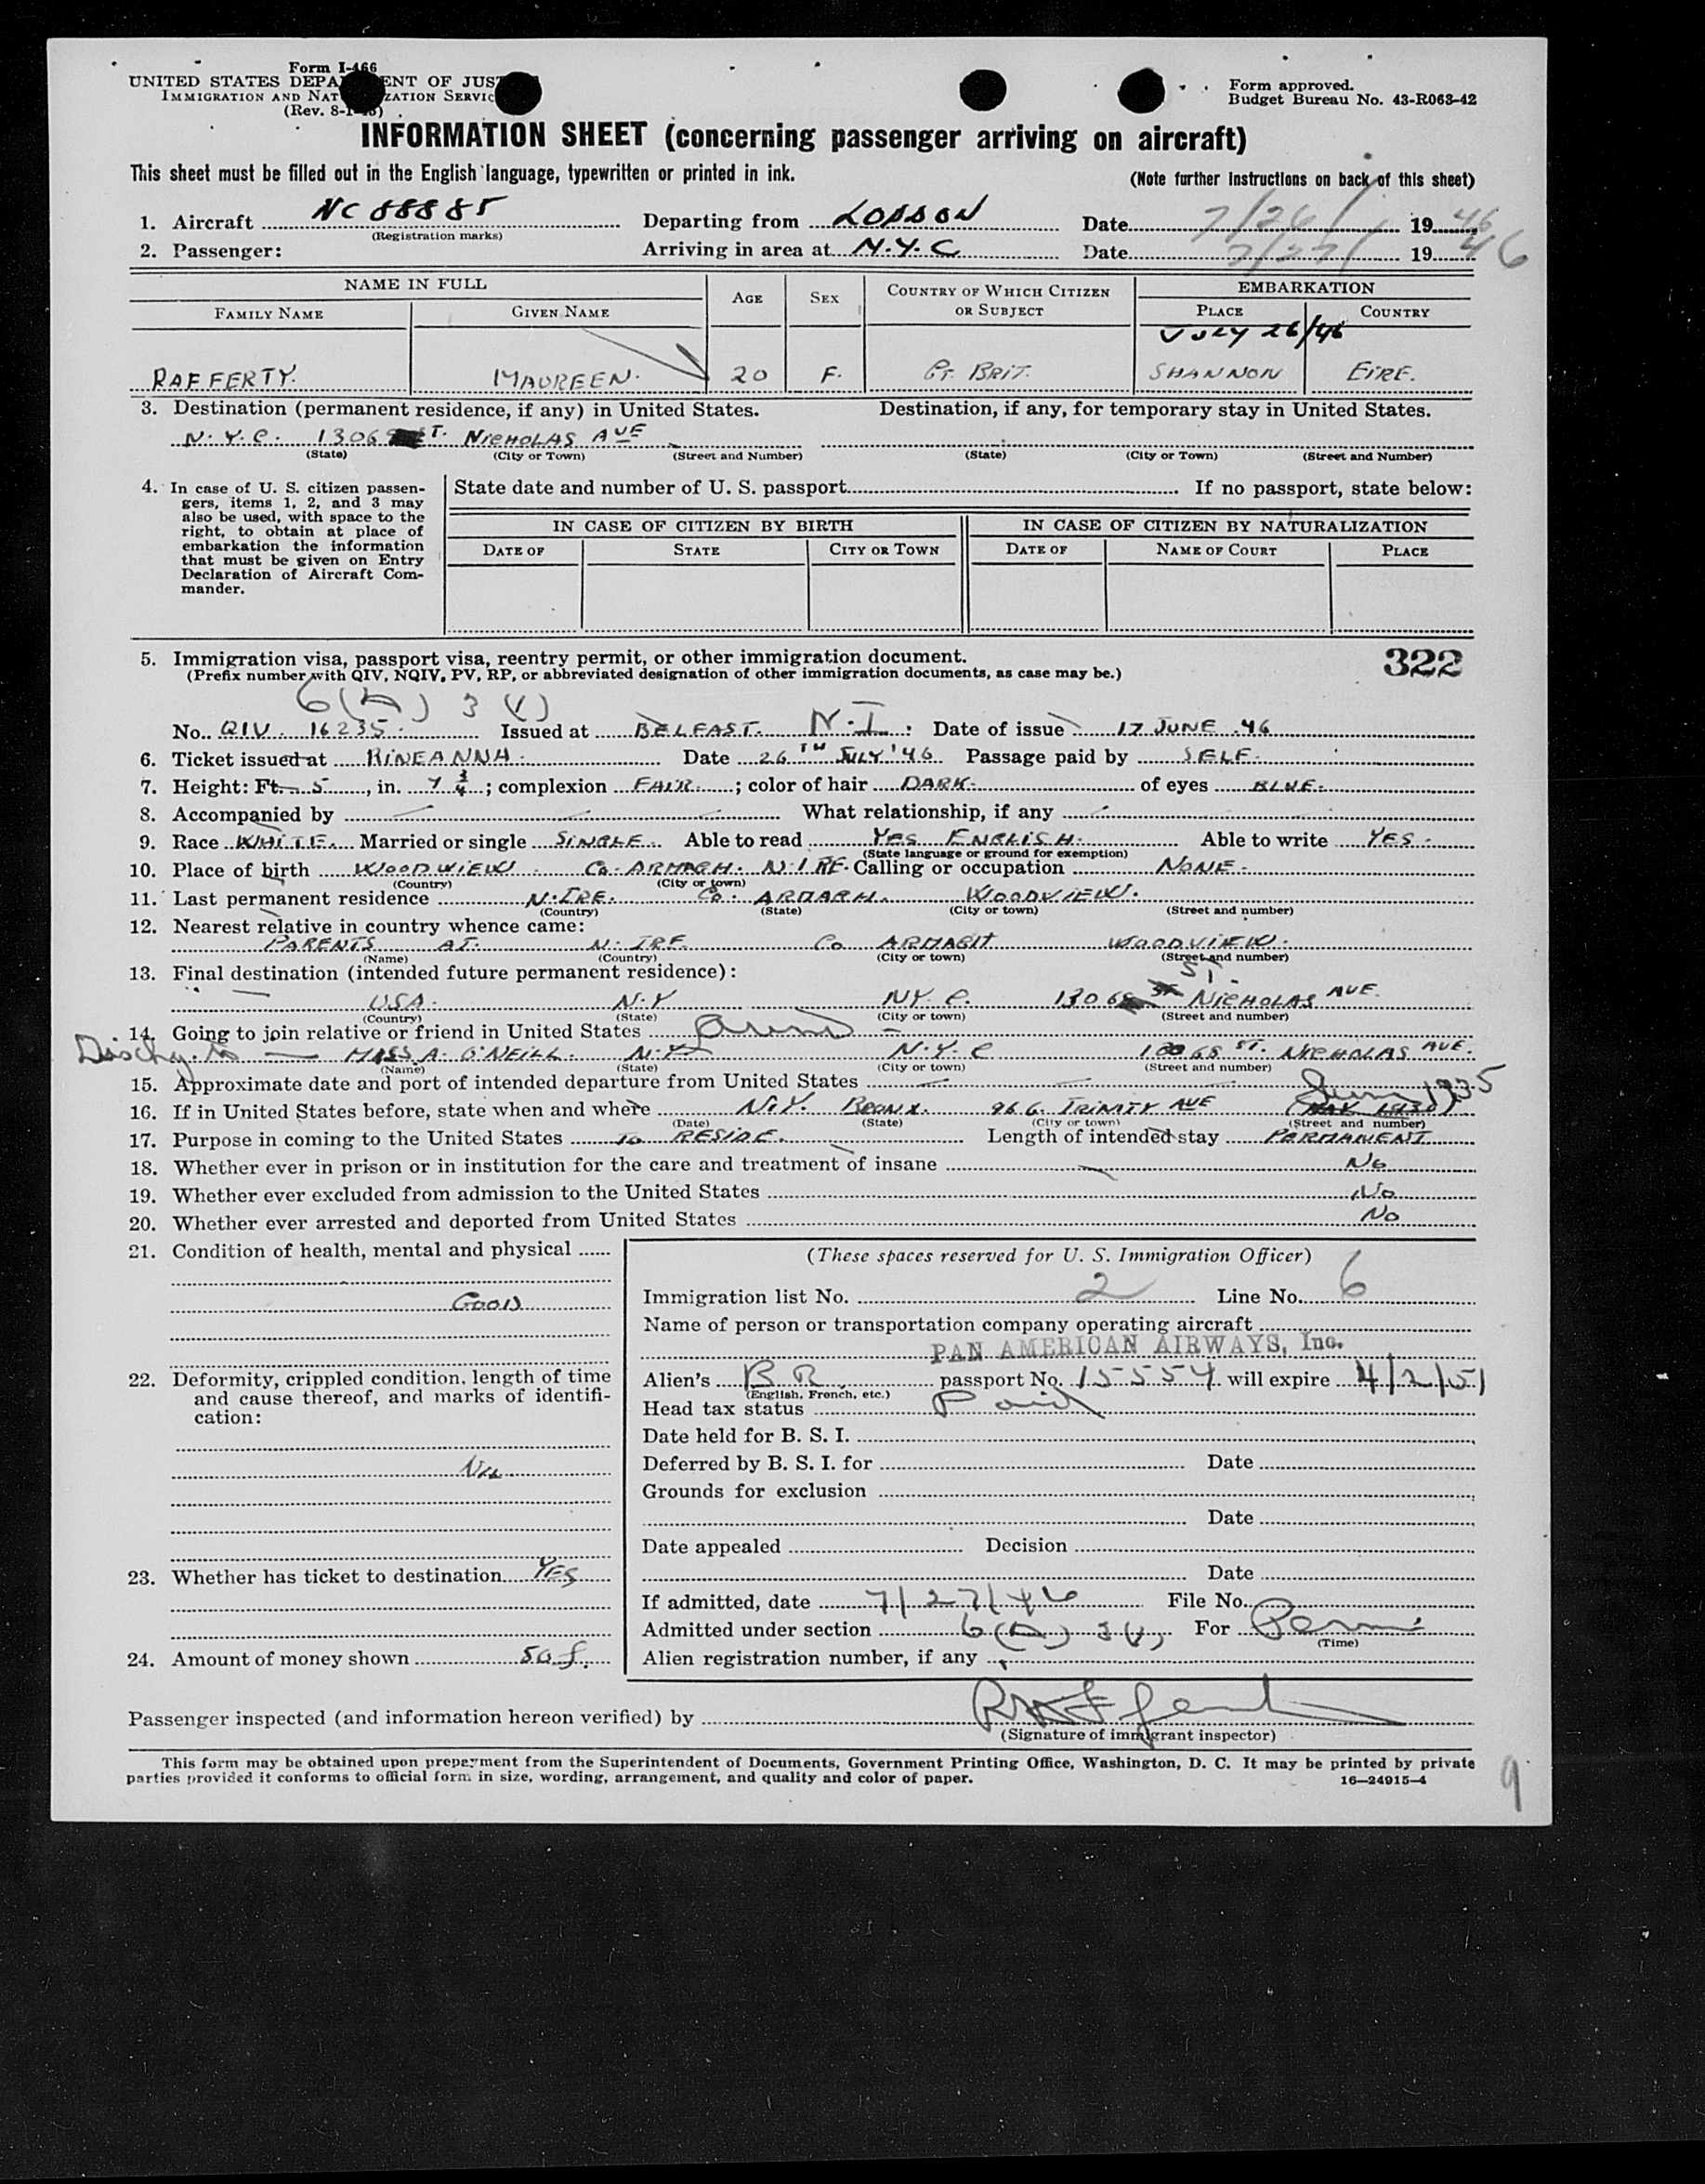 Form I-466
UNITED STATES DEPA ENT OF JUS
IMMIGRATION AND NAT ZATION SERVIC
(Rev. 8-1-45)
Form approved.
Budget Bureau No. 43-R063-42
INFORMATION SHEET (concerning passenger arriving on aircraft)
This sheet must be filled out in the English language, typewritten or printed in ink.
(Note further instructions on back of this sheet)
1. Aircraft NC 88885 Departing from LONDON Date 7/26/ 1946
(Registration marks)
2. Passenger: Arriving in area at N.Y.C Date 7/27/ 1946
NAME IN FULL AGE SEX COUNTRY OF WHICH CITIZEN OR SUBJECT EMBARKATION
FAMILY NAME GIVEN NAME PLACE COUNTRY
JULY 26/46
RAFFERTY. MAUREEN. 20 F. GT. BRIT. SHANNON EIRE.
3. Destination (permanent residence, if any) in United States. Destination, if any, for temporary stay in United States.
N.Y.C. 1306 ST. NICHOLAS AVE
(State) (City or Town) (Street and Number) (State) (City or Town) (Street and Number)
4. In case of U. S. citizen passengers, items 1, 2, and 3 may also be used, with space to the right, to obtain at place of embarkation the information that must be given on Entry Declaration of Aircraft Commander.
State date and number of U. S. passport If no passport, state below:
IN CASE OF CITIZEN BY BIRTH IN CASE OF CITIZEN BY NATURALIZATION
DATE OF STATE CITY OR TOWN DATE OF NAME OF COURT PLACE
5. Immigration visa, passport visa, reentry permit, or other immigration document. 322
(Prefix number with QIV, NQIV, PV, RP, or abbreviated designation of other immigration documents, as case may be.)
6(A) 3 (1)
No. QIV. 16235. Issued at BELFAST. N.I. Date of issue 17 JUNE .46
6. Ticket issued at RINEANNA. Date 26TH JULY '46 Passage paid by SELF.
7. Height: Ft. 5, in. 7 3/4; complexion FAIR.; color of hair DARK. of eyes BLUE.
8. Accompanied by What relationship, if any
9. Race WHITE. Married or single SINGLE. Able to read YES ENGLISH. Able to write YES.
(State language or ground for exemption)
10. Place of birth WOODVIEW. Co. ARMAGH. N. IRE. Calling or occupation NONE.
(Country) (City or town)
11. Last permanent residence N. IRE. Co. ARMAGH. WOODVIEW.
(Country) (State) (City or town) (Street and number)
12. Nearest relative in country whence came:
PARENTS AT. N. IRE. Co ARMAGH WOODVIEW.
(Name) (Country) (City or town) (Street and number)
13. Final destination (intended future permanent residence):
USA. N.Y NY C. 1306 ST. NICHOLAS AVE.
(Country) (State) (City or town) (Street and number)
14. Going to join relative or friend in United States Aunt
Dischg. to MISS A. O'NEILL. N.Y N.Y.C ST. NICHOLAS AVE.
(Name) (State) (City or town) (Street and number)
15. Approximate date and port of intended departure from United States
June 1935
16. If in United States before, state when and where N.Y. BRONX. 966. TRINITY AVE
(Date) (State) (City or town) (Street and number)
17. Purpose in coming to the United States To RESIDE. Length of intended stay PERMANENT
18. Whether ever in prison or in institution for the care and treatment of insane No
19. Whether ever excluded from admission to the United States No
20. Whether ever arrested and deported from United States No
21. Condition of health, mental and physical
GOOD
22. Deformity, crippled condition, length of time and cause thereof, and marks of identification:
NIL
23. Whether has ticket to destination YES
24. Amount of money shown 50 £.
(These spaces reserved for U. S. Immigration Officer)
Immigration list No. 2 Line No. 6
Name of person or transportation company operating aircraft
PAN AMERICAN AIRWAYS, Inc.
Alien's BR passport No. 15554 will expire 4/2/51
(English, French, etc.)
Head tax status Paid
Date held for B. S. I.
Deferred by B. S. I. for Date
Grounds for exclusion
Date
Date appealed Decision
Date
If admitted, date 7/27/46 File No.
Admitted under section 6(A) 3(1) For Perm
(Time)
Alien registration number, if any
Passenger inspected (and information hereon verified) by
(Signature of immigrant inspector)
This form may be obtained upon prepayment from the Superintendent of Documents, Government Printing Office, Washington, D. C. It may be printed by private
parties provided it conforms to official form in size, wording, arrangement, and quality and color of paper. 16—24915-4
9